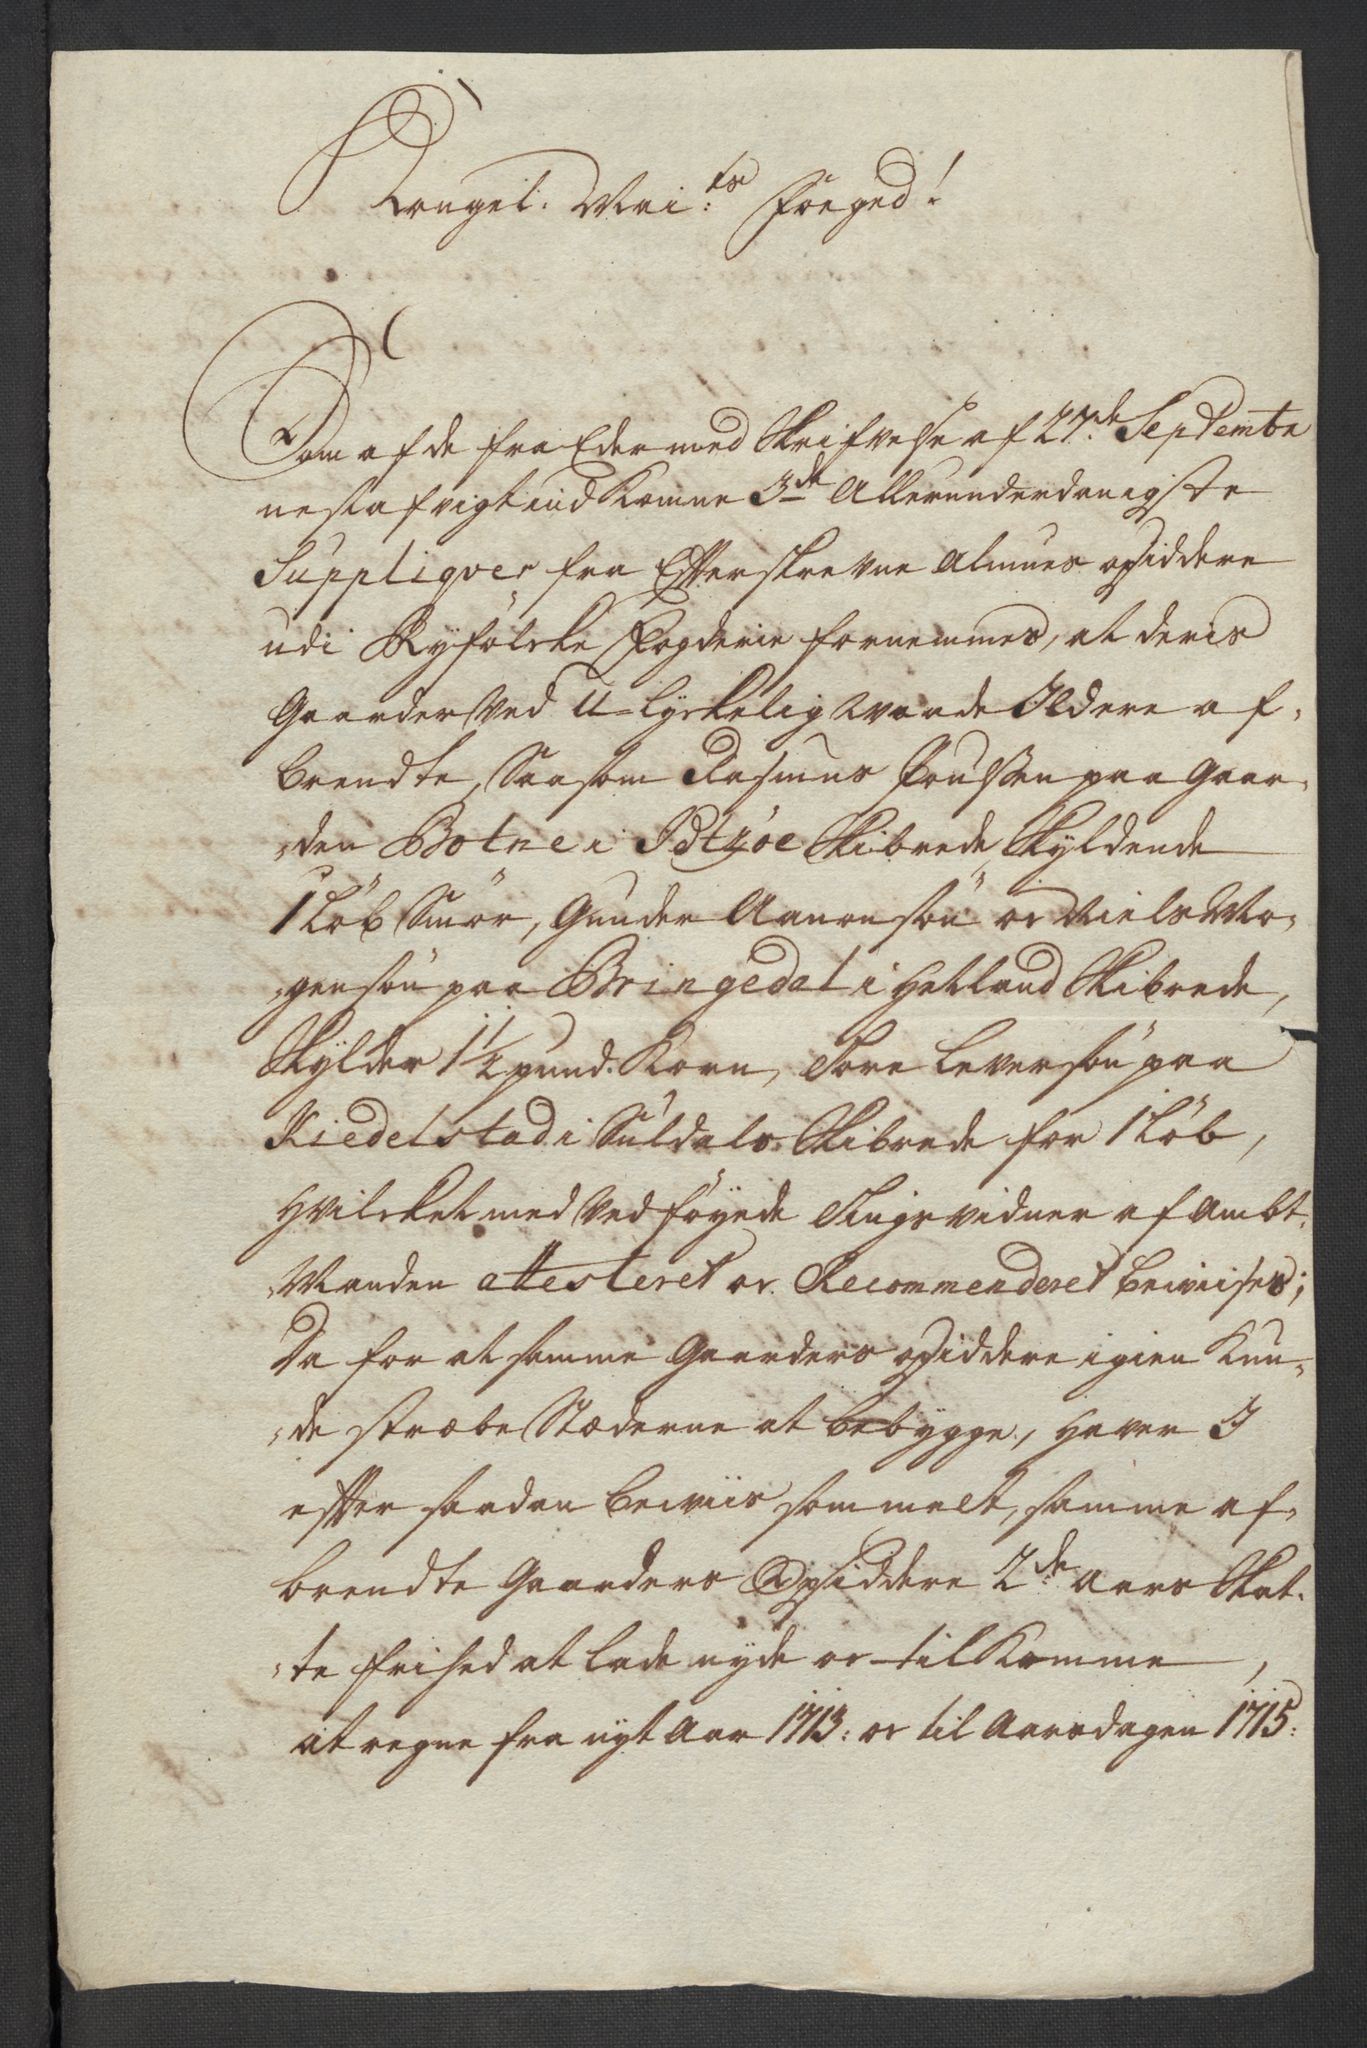 Kongel: Mai:ts Foeged!
Som af de fra Eder med Skrifvelse af 27:de Septembr
nest afvigt indkomne 3de Allerunderdanigste
Suppliqver fra Effterskrevne Almues opsiddere
udi Ryfölske Fogderie fornemmes, at deris
Gaarder Ved U-lyckelig Vaade Ild ere af,
brendte, Saasom Rasmus Poulsen paa Gaar,
,den Botne i Idtzöe Skibrede, Skyldende
1 Löb Smör, Gunder Aanonsön oc Niels Mo,
,gensön paa Bringedal i Hetland Skibrede,
Skylder 1 1/2 pund. Korn, Tore Leversön paa
Kiedelstad i Suldals Skibrede for 1 Löb,
Hvilcket med Vedföyede Tingsvidner af Ambt,
,Manden attesteret oc Recommenderet beviises;
Da for at samme Gaarders opsiddere igien Kun,
,de stræbe Stæderne at bebygge, Haver I
effter saadan beviis som melt, samme af,
brendte Gaarders Opsiddere 2de Aars Skat,
,te frihed at lade nyde oc tilkomme,
at regne fra nyt Aar 1713: oc til Aarsdagen 1715: